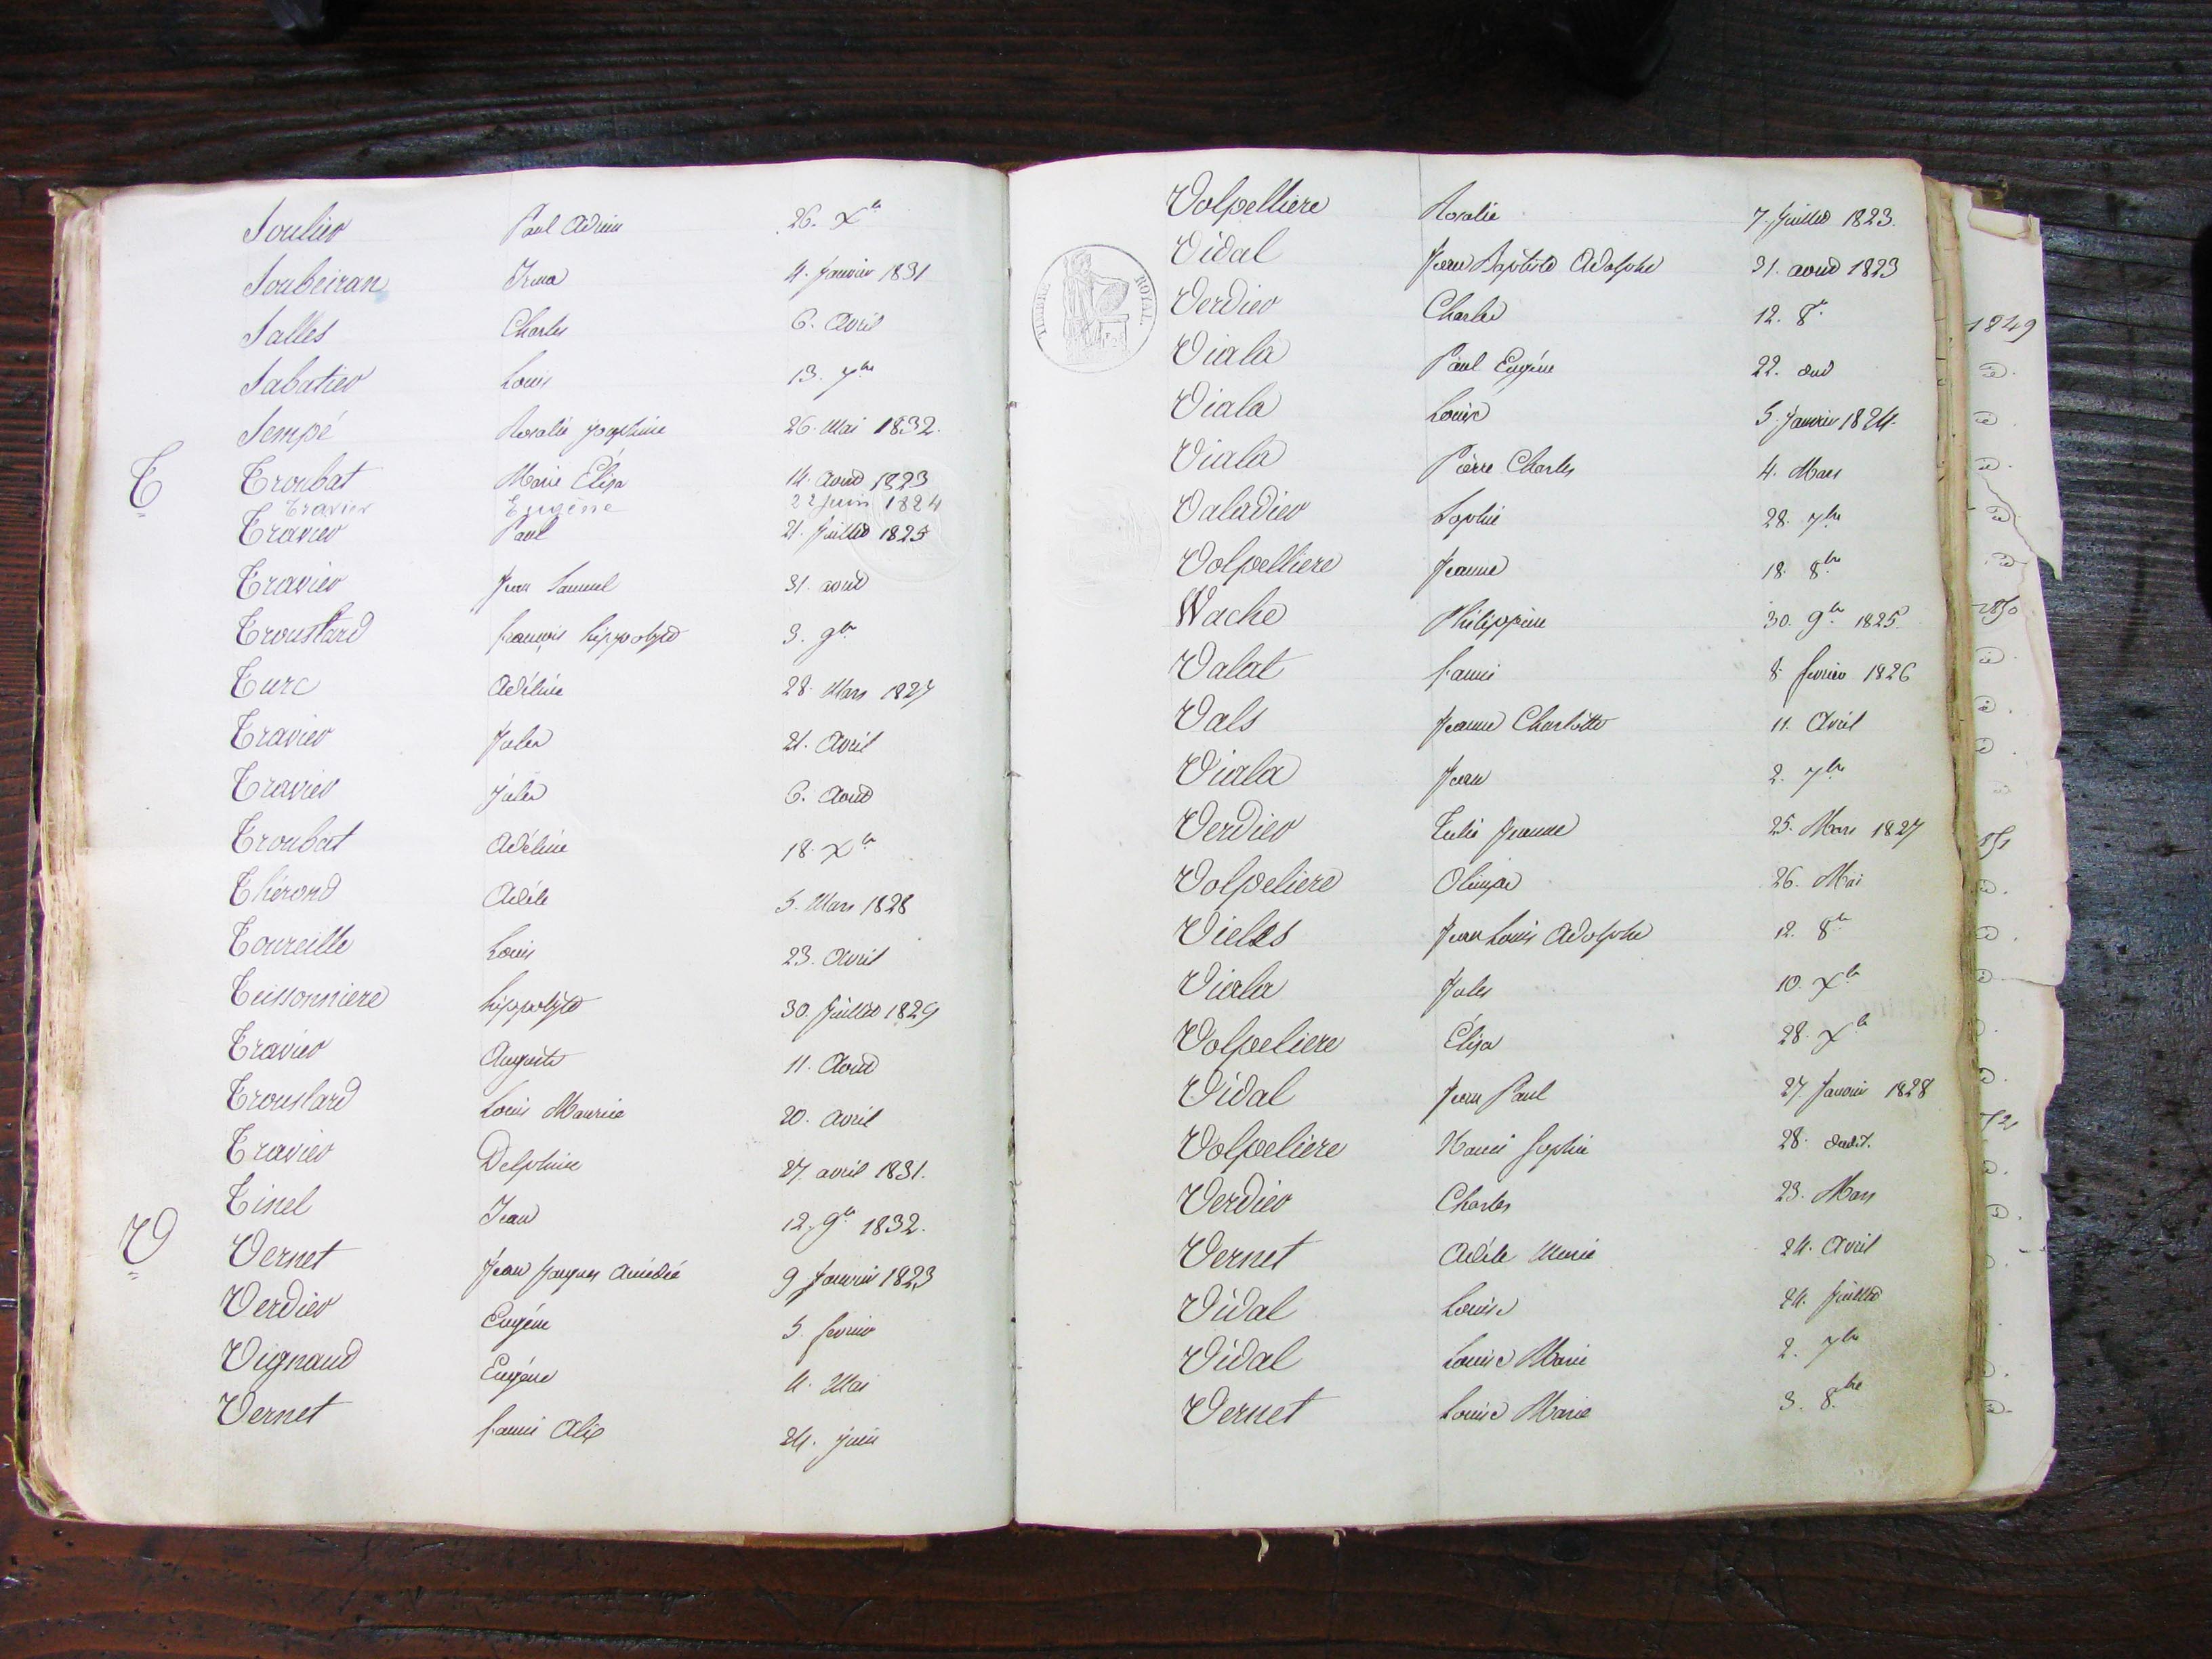 Soulier Paul Adrien 26. Xbr
Soubeiran Irma 4. Janvier 1831
Salles Charles 6. Avril
Sabatier Louis 13. 7bre
Sempé Rosalie Joséphine 26. Mai 1832.
T Troubat Marie Élisa 14. Aout 1823
Travier Eugène 22 juin 1824
Travier Paul 21. Juillet 1825
Travier Jean Samuel 31. aout
Troustard françois hippolyte 3. 9br
Turc Adéline 28. Mars 1827
Travier Jules 21. Avril
Travier Jules 6. Aout
Troubat Adéline 18. Xbr
Thérond Adèle 5. Mars 1828
Toureille Louis 23. Avril
Teissonniere hippolyte 30. Juillet 1829
Travier Auguste 11. Aout
Trouslard Louis Maurice 20. Avril
Travier Delphine 27. avril 1831.
Tinel Jean 12. 9br 1832.
V Vernet Jean Jaques Amédée 9 Janvier 1823
Verdier Eugène 5. fevrier
Vignaud Eugène 4. Mai
Vernet fanni Alix 24. juin
Volpelliere Rosalie 7. Juillet 1823.
TIMBRE ROYAL.
Vidal Jean Baptiste Adolphe 31. aout 1823
Verdier Charles 12. 8r
Viala Paul Eugéne 22. dud
Viala Louise 5. Janvier 1824.
Viala Pierre Charles 4. Mars
Valadier Sophie 28. 7bre
Volpelliere Jeanne 18. 8bre
Wache Philippine 30. 9br 1825.
Valat fanni 8. fevrier 1826
Vals Jeanne Charlotte 11. Avril
Viala Jean 2. 7bre
Verdier Julie Jeanne 25. Mars 1827
Volpeliere Olimpe 26. Mai
Viells Jean Louis Adolphe 12. 8br
Viala Jules 10. Xbr
Volpeliere Élisa 28. Xbr
Vidal Jean Paul 27. Janvier 1828
Volpeliere Nanci Sophie 28. dudit.
Verdier Charles 23. Mars
Vernet Adèle Marie 24. Avril
Vidal Louise 24. Juillet
Vidal Louise Marie 2. 7br
Vernet Louise Marie 3. 8bre
1849